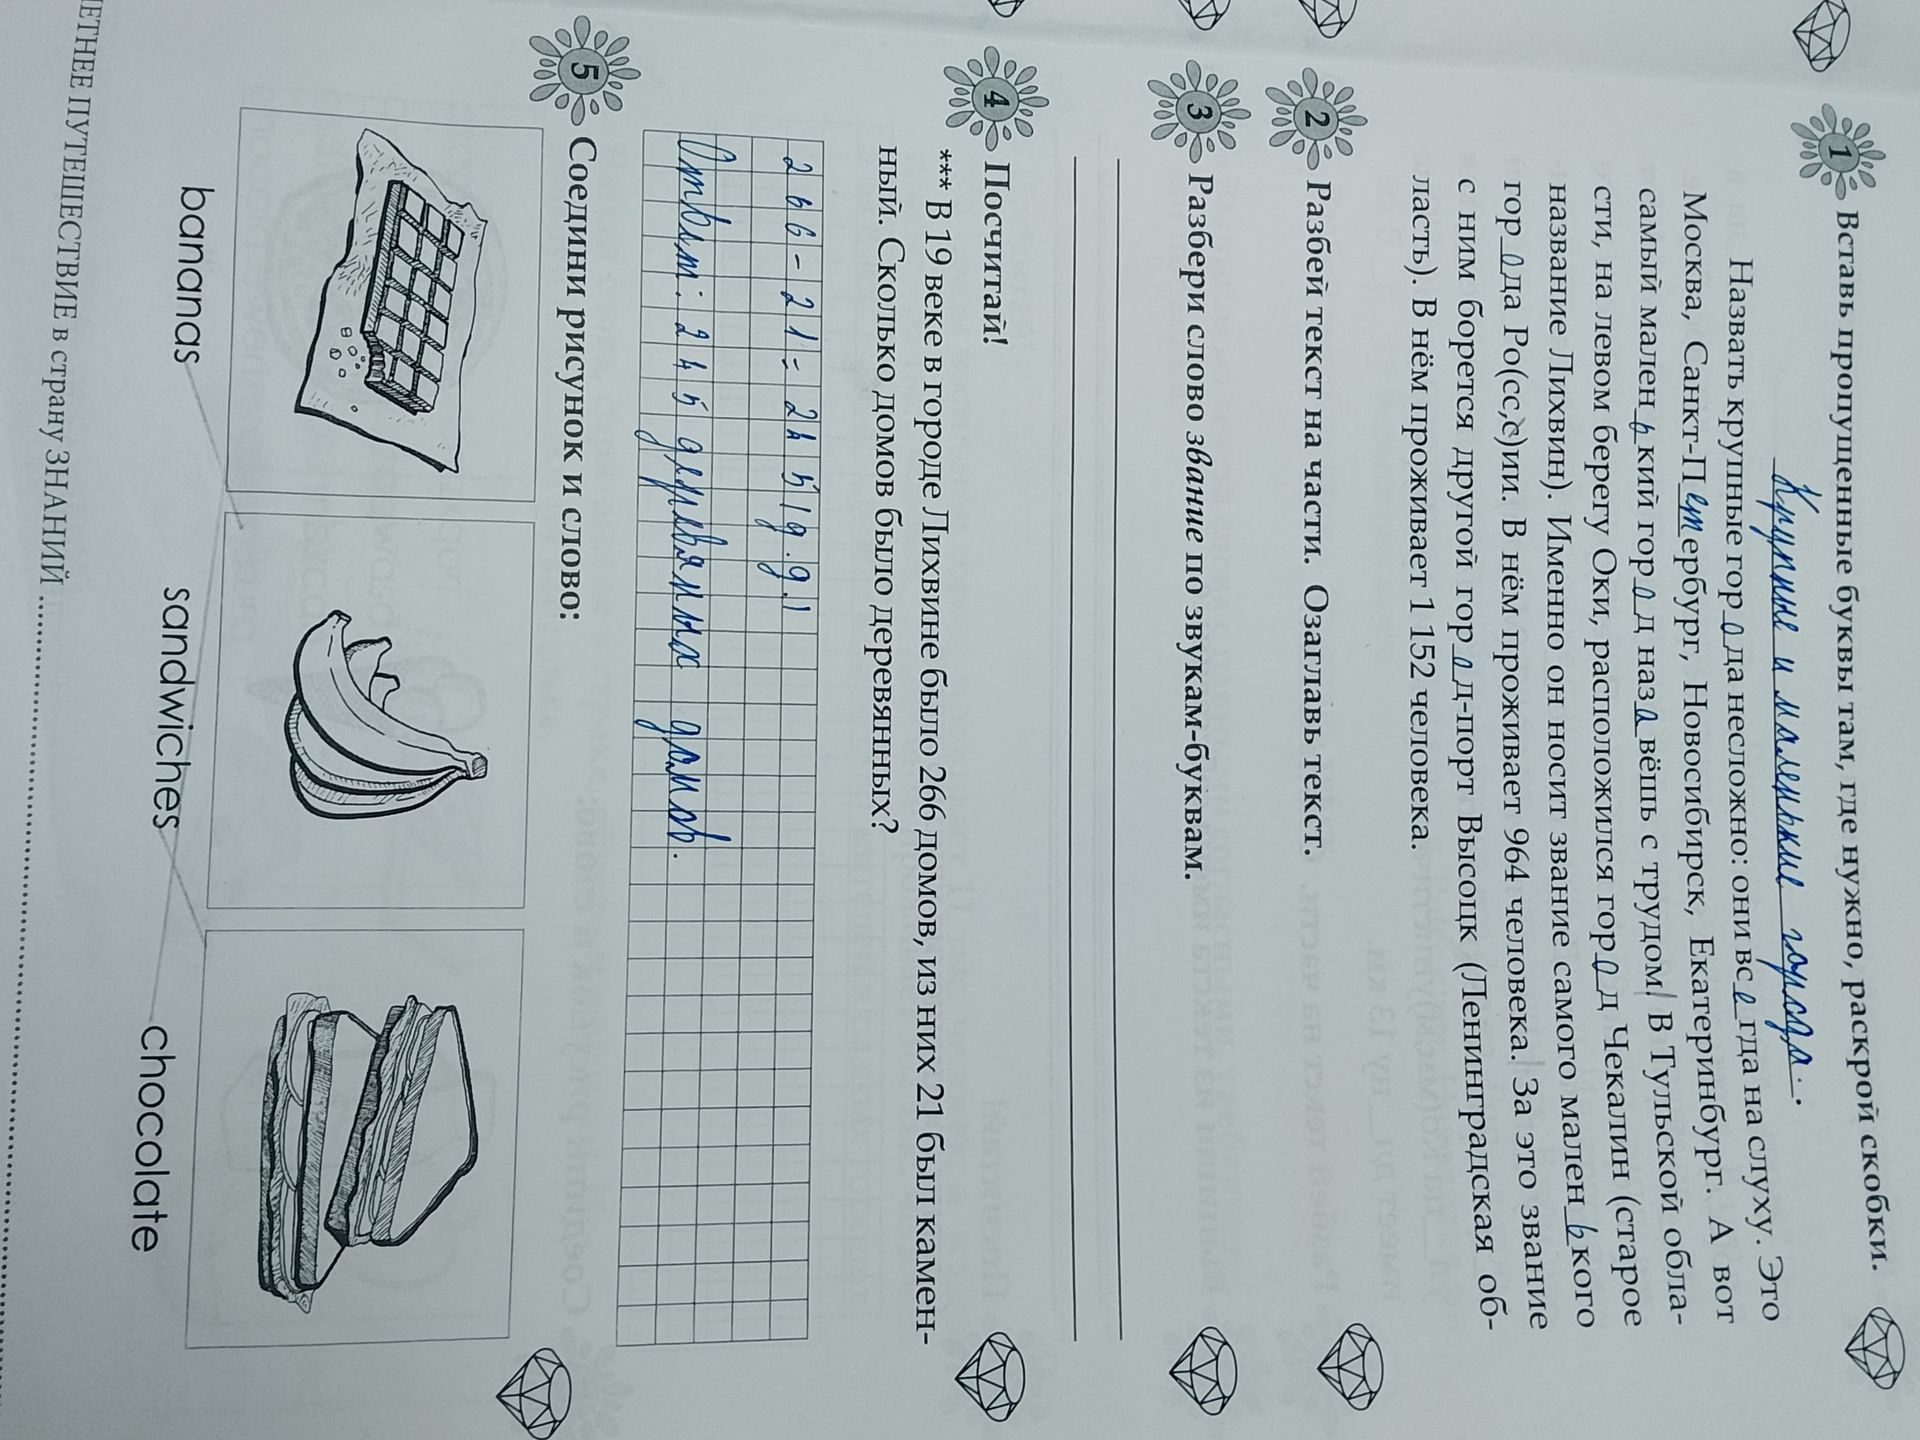 1 Вставь пропущенные буквы там, где нужно, раскрой скобки.
Крупные и маленькие города.
Назвать крупные города несложно: они всегда на слуху. Это
Москва, Санкт-Петербург, Новосибирск, Екатеринбург. А вот
самый маленький город назавёшь с трудом! В Тульской обла-
сти, на левом берегу Оки, расположился город Чекалин (старое
название Лихвин). Именно он носит звание самого маленького
города Ро(сс,с)ии. В нём проживает 964 человека. За это звание
с ним борется другой город-порт Высоцк (Ленинградская об-
ласть). В нём проживает 1 152 человека.
2 Разбей текст на части. Озаглавь текст.
3 Разбери слово звание по звукам-буквам.
4 Посчитай!
*** В 19 веке в городе Лихвине было 266 домов, из них 21 был камен-
ный. Сколько домов было деревянных?
266-21=245(д.д.)
Ответ: 245 деревяных домов.
5 Соедини рисунок и слово:
bananas sandwiches chocolate
ЛЕТНЕЕ ПУТЕШЕСТВИЕ в страну ЗНАНИЙ